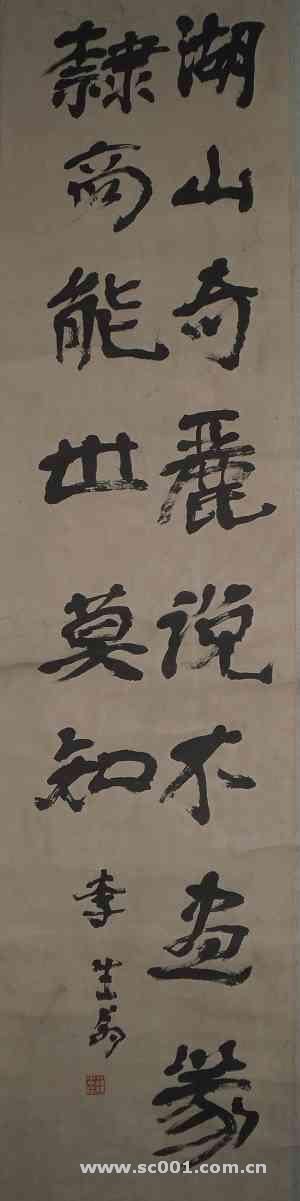 湖山奇麗説不盡篆
隸高能世莫知
李生翁
www.sc001.com.cn